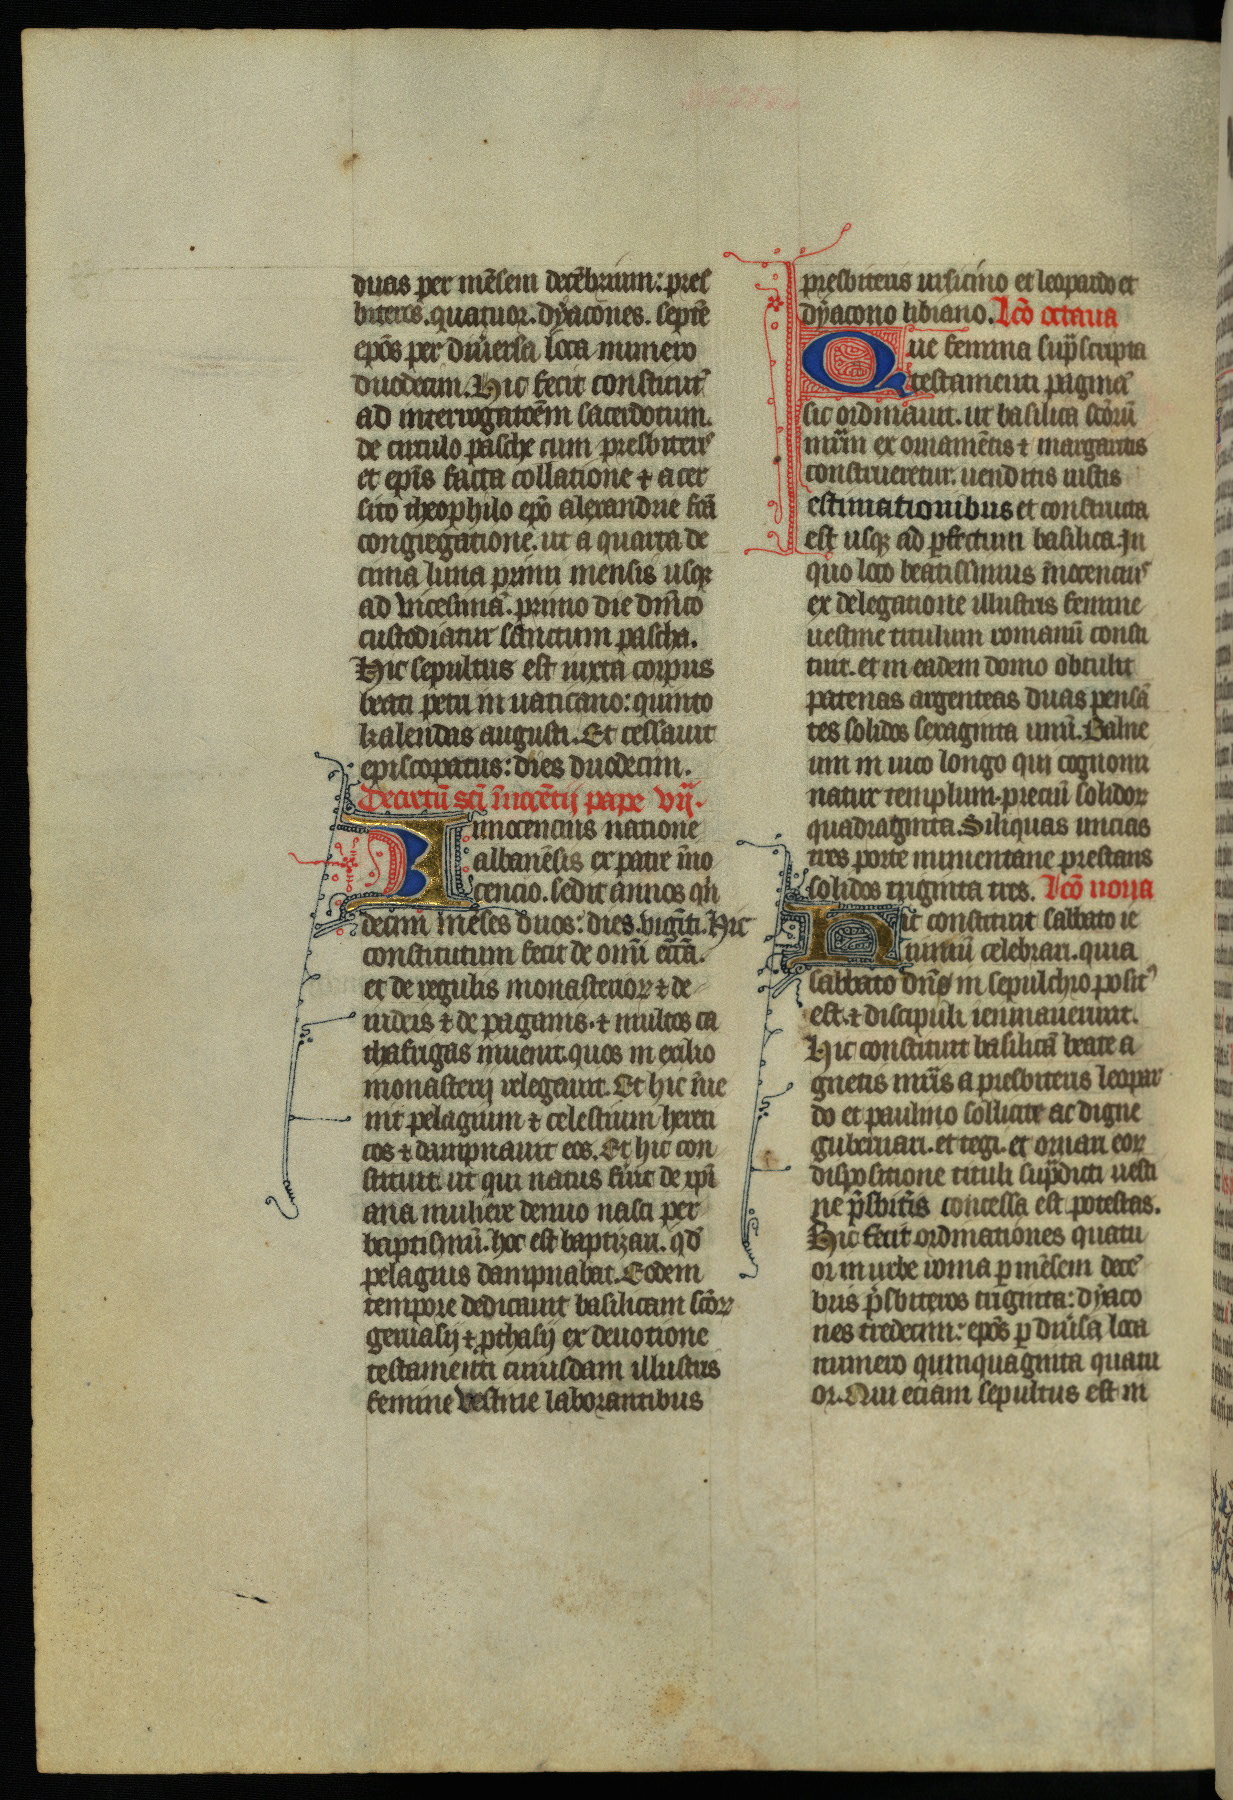 duas per mēsem decēbrium: pres
biteros. quatuor. dyacones. septē
epōs per diuersa loca numero
duodecim. Hic fecit constitutū
ad interrogatōem sacerdotum.
de circulo pasche cum presbiteris
et epīs facta collatione ⁊ acer
sito theophilo epō alexandrie fcā
congregatione. ut a quarta de
cima luna primi mensis usqꝫ
ad vicesimā. primo die dn̄ico
custodiatur sanctum pascha.
Hic sepultus est iuxta corpus
beati petri in uaticano: quinto
kalendas augusti. Et cessauit
episcopatus: dies duodecim.
Decretū scī īnocētij pape vij.
Innocencius natione
albanēsis ex patre īno
cencio. sedit annos qūi
decim̄ mēses duos: dies. vigīti. Hic
constitutum fecit de omī eccā.
et de regulis monasterioꝝ ⁊ de
iudeis ⁊ de paganis. ⁊ multos ca
thafrigas inuenit. quos in exilio
monasterij relegauit. Et hic īue
nit pelagium ⁊ celestium hereti
cos ⁊ dampnauit eos. Et hic con
stituit. ut qui natus fūit de xp̄i
ana muliere denuo nasci per
baptismū. hoc est baptizari. qd̄
pelagius dampnabat. Eodem
tempore dedicauit basilicam scōꝝ
geruasij ⁊ ꝓthasij ex deuotione
testamenti cuiusdam illustris
femine Vestine laborantibus
presbiteris ursicino et leopardo et
dyacono libiano. Lcō octaua
Que femina sup̄scripta
testamenti paginā
sic ordinauit. ut basilica scōrū
mr̄m ex ornamētis ⁊ margaritis
construeretur. uenditis iustis
estimationibus et constructa
est usqꝫ ad ꝑfectum basilica. In
quo loco beatissimus īnocencius
ex delegatione illustris femine
uestine titulum romanū consti
tuit. et in eadem domo obtulit
patenas argenteas duas pensā
tes solidos sexaginta unū. Balne
um in uico longo qui cognomi
natur templum. preciū solidoꝝ
quadraginta. Siliquas uncias
tres porte numentane prestans
solidos triginta tres. Lcō nona
Hic constituit sabbato ie
iuniū celebrari. quia
sabbato dn̄s in sepulchro positꝰ
est. ⁊ discipuli ieiunauerunt.
Hic constituit basilicā beate a
gnetis mr̄is a presbiteris leopar
do et paulino sollicite ac digne
gubernari. et tegi. et ornari eoꝝ
dispositione tituli sup̄dicti uesti
ne p̄sbitr̄is concessa est. potestas.
Hic fecit ordinationes quatu
or in urbe roma ꝑ mēsem decē
bris p̄sbiteros triginta: dyaco
nes tredecim: epōs ꝑ diūsa loca
numero quinquaginta quatu
or. Qui eciam sepultus est in